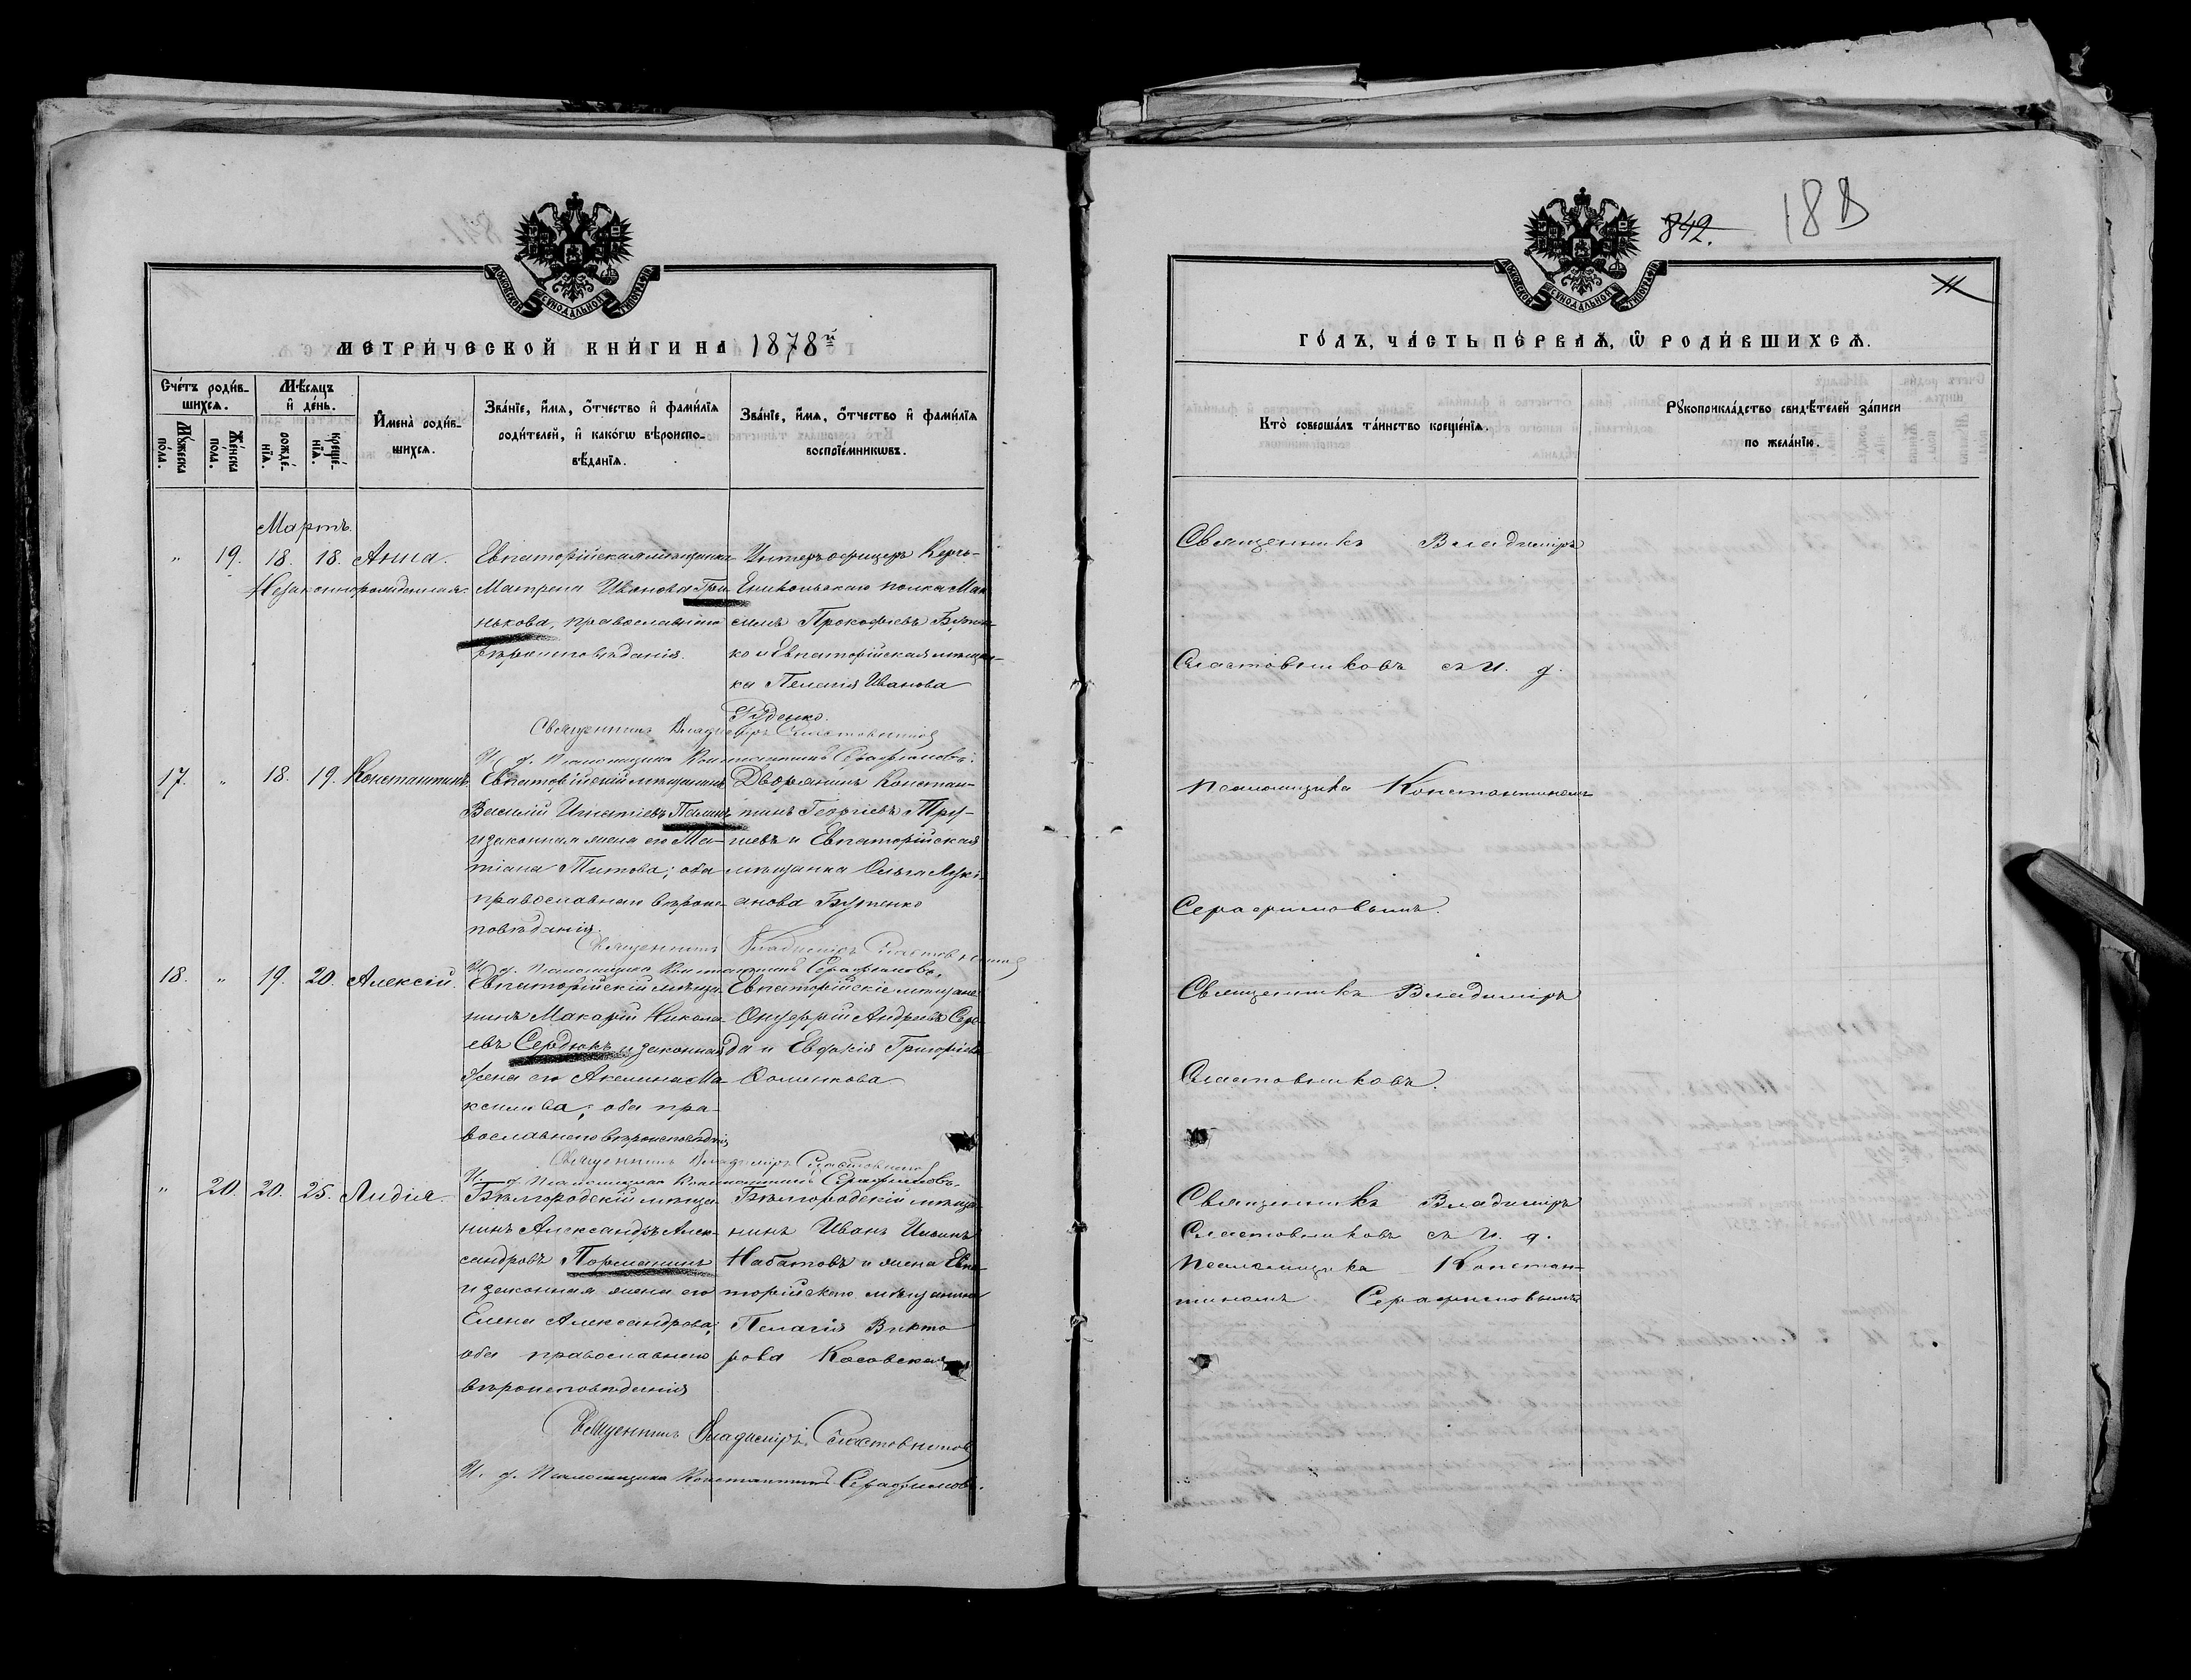 842.
18
11
МОСКОВСКОЙ СѴНОДАЛЬНОЙ ТИПОГРАФІИ
МЕТРИ́ЧЕСКОЙ КНИ́ГИ НА 1878й
Сче́тъ роди́в-
шихсѧ.
Мꙋжеска
пола.
Же́нска
пола.
Мѣ́сѧцъ
и҆ де́нь.
рожде́-
нїѧ.
креще́-
нїѧ.
И҆мена̀ роди́в-
шихсѧ.
Зва́нїе, и҆́мѧ, ѻ҆́тчество и҆ фами́лїѧ
роди́телей, и҆ како́гѡ вѣроиспо-
вѣ́данїѧ.
Зва́нїе, и҆́мѧ, ѻ҆́тчество и҆ фами́лїѧ
воспрїе́мникѡвъ.
Мартъ.
" 19. 18. 18. Анна.
Незаконнорожденная.
Евпаторійская мѣщанка
Матрена Иванова Гри-
нькова, православнаго
вѣроисповѣданія.
Унтеръ-офицеръ Керчь-
Еникольскаго полка Мак
симъ Прокофьевъ Бутен-
ко и Евпаторійская мѣщан-
ка Пелагія Иванова
Руденко.
Священникъ Владиміръ Сластовниковъ
И. д. Псаломщика Константинъ Серафимовъ.
17. " 18. 19. Константинъ.
Евпаторійскій мѣщанинъ
Василій Игнатіевъ
и законная жена его Та-
тіана Титова; оба
православнаго вѣроис-
повѣданія.
Дворянинъ Констан-
тинъ Георгіевъ Тру-
шевъ и Евпаторійская
мѣщанка Ольга Луки-
анова Бутенко
Священникъ Владиміръ Сластовниковъ
И. д. Псаломщика Константинъ Серафимовъ.
18. " 19. 20. Алексій.
Евпаторійскій мѣща-
нинъ Макарій Никола-
евъ Сердюкъ и законная
жена его Акелина Ма-
ксимова; оба пра-
вославнаго вѣроисповѣданія
Евпаторійскіе мѣщане
Онуфрій Андреевъ Сере-
да и Евдокія Григорьева
Доменкова
Священникъ Владиміръ Сластовниковъ
И. д. Псаломщика Константинъ Серафимовъ.
" 20. 20. 25. Лидія.
Бѣлгородскій мѣща-
нинъ Александръ Алек-
сандровъ
и законная жена его
Елена Александрова;
оба православнаго
вѣроисповѣданія
Бѣлгородскій мѣща-
нинъ Иванъ Ильинъ
Набатовъ и жена Евпа-
торійскаго мѣщанина
Пелагія Викто-
рова Косовская
Священникъ Владиміръ Сластовниковъ
И. д. Псаломщика Константинъ Серафимовъ.
МОСКОВСКОЙ СѴНОДАЛЬНОЙ ТИПОГРАФІИ
ГО́ДЪ, ЧА́СТЬ ПЕ́РВАѦ, Ѽ РОДИ́ВШИХСѦ.
Кто̀ соверша́лъ та́инство креще́нїѧ.
Рꙋкоприкла́дство свидѣ́телей за́писи
по жела́нїю.
Священникъ Владиміръ
Сластовниковъ съ И. д.
Псаломщика Константиномъ
Серафимовымъ.
Священникъ Владиміръ
Сластовниковъ.
Священникъ Владиміръ
Сластовниковъ съ И. д.
Псаломщика Констан-
тиномъ Серафимовымъ